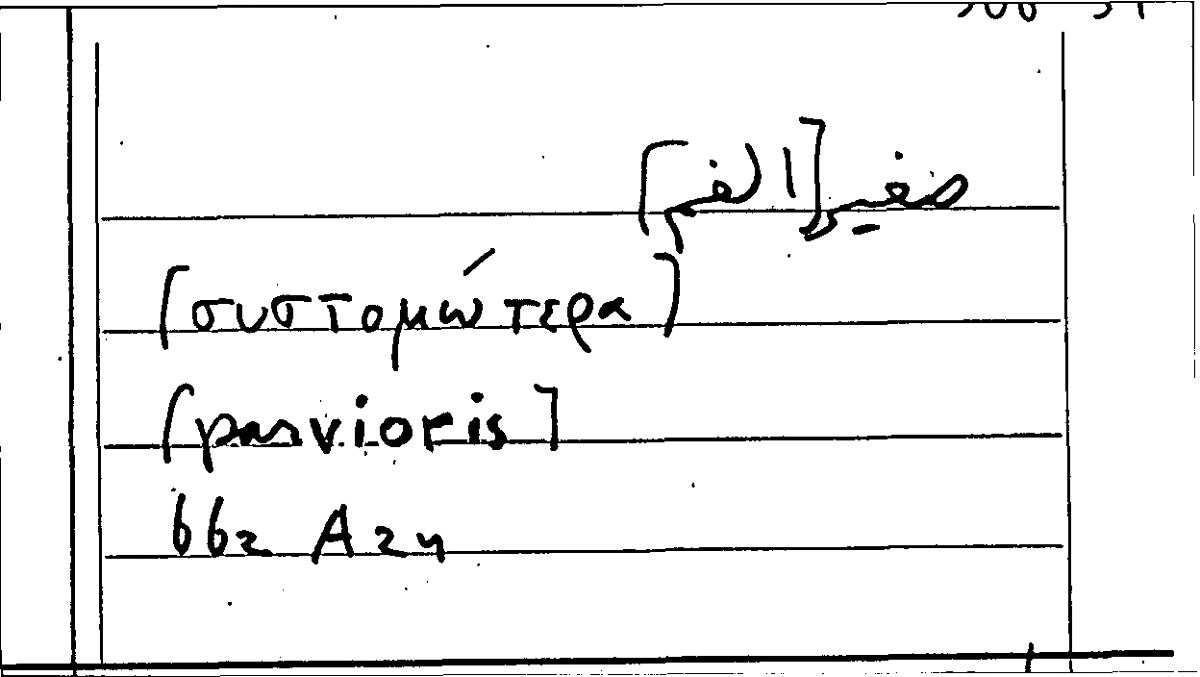 صغير [الفم]
[συστομώτερα]
[parvioris]
662 A 24